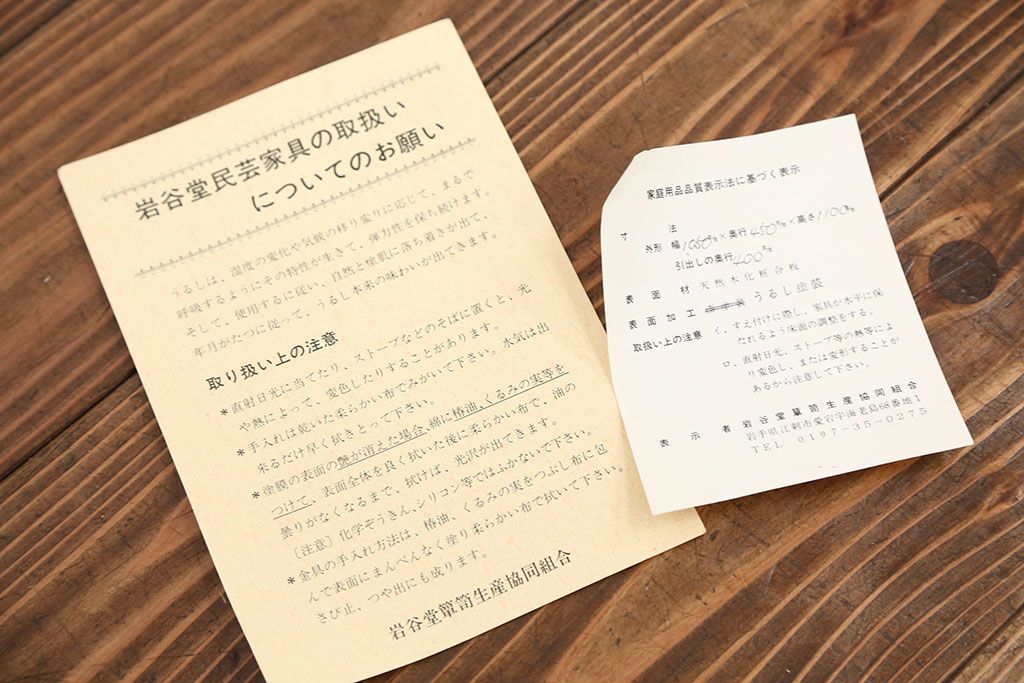 岩谷堂民芸家具の取扱い
についてのお願い
うるしは、湿度の変化や気候の移り変りに応じて、まるで
呼吸するようにその特性が生きて、弾力性を保ち続けます。
そして、使用するに従い、自然と艶肌に落ち着きが出て、
年月がたつに従って、うるし本来の味わいが出てきます。
取り扱い上の注意
*直射日光に当てたり、ストーブなどのそばに置くと、光
や熱によって、変色したりすることがあります。
*手入れは乾いた柔らかい布でみがいて下さい。水気は出
来るだけ早く拭きとって下さい。
*塗膜の表面の艶が消えた場合、綿に椿油、くるみの実等を
つけて、表面全体を良く拭いた後に柔らかい布で、油の
曇りがなくなるまで、拭けば、光沢が出てきます。
〔注意〕化学ぞうきん、シリコン等ではふかないで下さい。
*金具の手入れ方法は、椿油、くるみの実をつぶし布に包
んで表面にまんべんなく塗り柔らかい布で拭いて下さい。
さび止、つや出にも成ります。
岩谷堂簞笥生産協同組合
家庭用品品質表示法に基づく表示
寸法
外形 幅1050%×奥行450%×高さ1100%
引出しの奥行400%
表面材 天然木化粧合板
表面加工 うるし塗装
取扱い上の注意 イ、すえ付けに際し、家具が水平に保
たれるよう床面の調整をする。
ロ、直射日光、ストーブ等の熱等によ
り変色し、または変形することが
あるから注意して下さい。
表示者 岩谷堂簞笥生産協同組合
岩手県江刺市愛宕字海老島68番地1
TEL 0197-35-0275